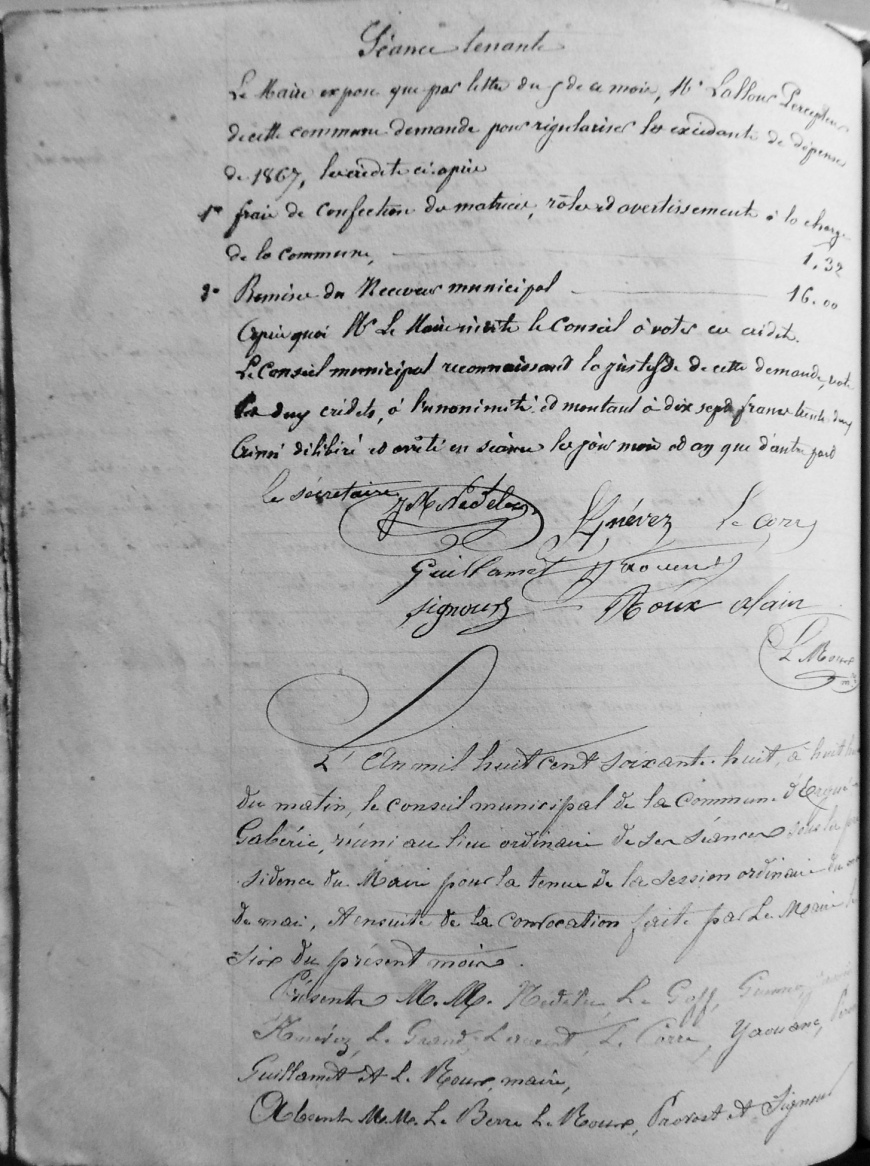 Séance tenante
Le Maire expose que par lettre du 5 de ce mois, Mr Lallour Percepteur
de cette commune demande pour régulariser les excédants de dépenses
de 1867, les crédits ci-après
1° frais de confection du matrice, rôles et avertissement à la charge
de la commune, 1.32
2° Remises du Receveur municipal 16.00
Après quoi Mr Le Maire invite le Conseil à voter ce crédit.
Le Conseil municipal reconnaissant la justesse de cette demande, vote
les deux crédits, à l'unonimité et montant à dix sept francs trente deux
Ainsi délibéré et arrêté en séance les jour mois et an que d'autre part
le secrétaire
Nédélec Knévez Le Corre
Guillamet Yaouanc
Signour Roux alain
Le Roux
L'An mil huit cent soixante-huit, à huit
du matin, le conseil municipal de la Commune d'Ergué-
Gabéric, réuni au lieu ordinaire de ses séances sous la pré
sidence du Maire pour la tenue de la session ordinaire du
de mai, et ensuite de la convocation faite par Le Maire le
six du présent mois.
Présents M.M. Nédélec, Le Goff,
Knévez, Le Grand, Le Corre, Yaouanc,
Guillamet et Le Roux, maire,
Absents M.M. Le Berre Le Roux, Provost et Signour